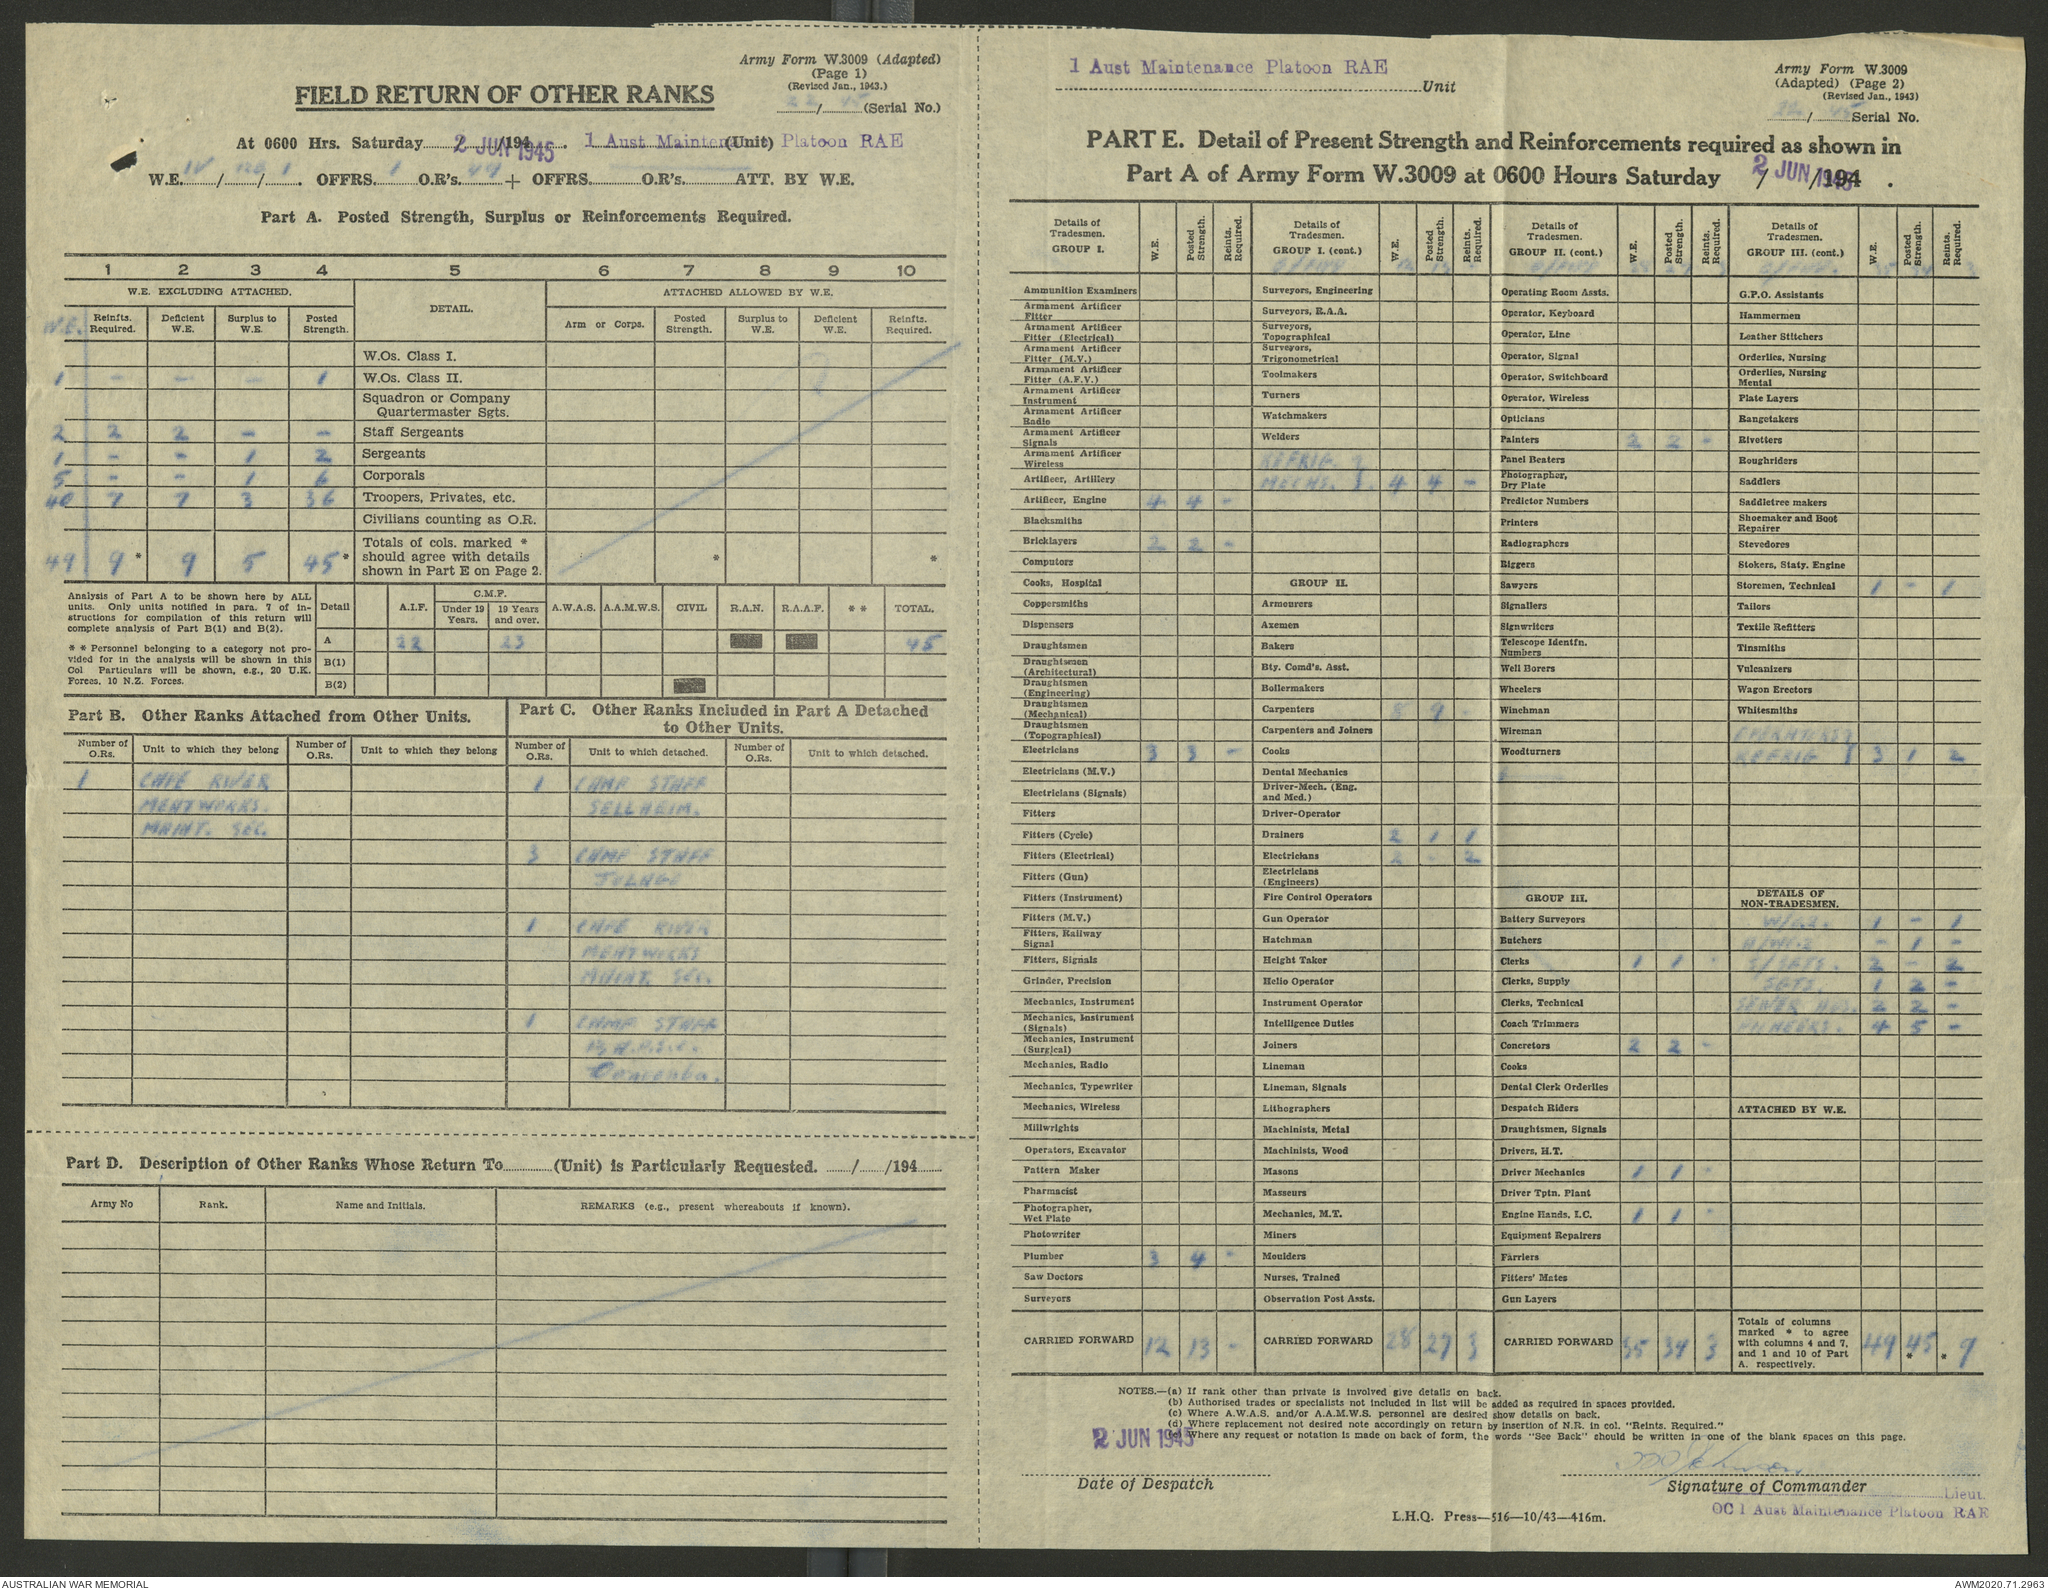 Army Form W.3009 (Adapted)
(Page 1)
(Revised Jan., 1943.)
22/45 (Serial No.)
FIELD RETURN OF OTHER RANKS
At 0600 Hrs. Saturday 2 JUN 1945 /194 . 1 Aust Maintenance Platoon RAE (Unit)
W.E. IV / / 1 . OFFRS. 1 O.R's. 49 + OFFRS. O.R's. ATT. BY W.E.
Part A. Posted Strength, Surplus or Reinforcements Required.
1 2 3 4 5 6 7 8 9 10
W.E. EXCLUDING ATTACHED. DETAIL. ATTACHED ALLOWED BY W.E.
W.E. Reinfts. Required. Deficient W.E. Surplus to W.E. Posted Strength. Arm or Corps. Posted Strength. Surplus to W.E. Deficient W.E. Reinfts. Required.
W.Os. Class I.
1 - - - 1 W.Os. Class II.
Squadron or Company
Quartermaster Sgts.
2 2 2 - - Staff Sergeants
1 - - 1 2 Sergeants
5 - - 1 6 Corporals
40 7 7 3 36 Troopers, Privates, etc.
Civilians counting as O.R.
49 9 * 9 5 45 * Totals of cols. marked * should agree with details shown in Part E on Page 2. * *
Analysis of Part A to be shown here by ALL
units. Only units notified in para. 7 of in-
structions for compilation of this return will
complete analysis of Part B(1) and B(2).
* * Personnel belonging to a category not pro-
vided for in the analysis will be shown in this
Col Particulars will be shown, e.g., 20 U.K.
Forces. 10 N.Z. Forces.
Detail A.I.F. C.M.F. Under 19 Years. 19 Years and over. A.W.A.S. A.A.M.W.S. CIVIL R.A.N. R.A.A.F. * * TOTAL.
A 22 23 45
B(1)
B(2)
Part B. Other Ranks Attached from Other Units.
Number of O.Rs. Unit to which they belong Number of O.Rs. Unit to which they belong
1 CAPE RIVER
MEATWORKS.
MAINT. SEC.
Part C. Other Ranks Included in Part A Detached
to Other Units.
Number of O.Rs. Unit to which detached. Number of O.Rs. Unit to which detached.
1 CAMP STAFF
SELLHEIM.
3 CAMP STAFF
JULAGO
1 CAPE RIVER
MEATWORKS
MAINT. SEC.
1 CAMP STAFF
Oonoonba.
Part D. Description of Other Ranks Whose Return To (Unit) is Particularly Requested. / /194
Army No Rank. Name and Initials. REMARKS (e.g., present whereabouts if known).
1 Aust Maintenance Platoon RAE
Unit
Army Form W.3009
(Adapted) (Page 2)
(Revised Jan., 1943)
22/45 Serial No.
PART E. Detail of Present Strength and Reinforcements required as shown in
Part A of Army Form W.3009 at 0600 Hours Saturday 2 JUN 1945 / /194 .
Details of Tradesmen. GROUP I. W.E. Posted Strength. Reints. Required.
Ammunition Examiners
Armament Artificer Fitter
Armament Artificer Fitter (Electrical)
Armament Artificer Fitter (M.V.)
Armament Artificer Fitter (A.F.V.)
Armament Artificer Instrument
Armament Artificer Radio
Armament Artificer Signals
Armament Artificer Wireless
Artificer, Artillery
Artificer, Engine 4 4 -
Blacksmiths
Bricklayers 2 2 -
Computors
Cooks, Hospital
Coppersmiths
Dispensers
Draughtsmen
Draughtsmen (Architectural)
Draughtsmen (Engineering)
Draughtsmen (Mechanical)
Draughtsmen (Topographical)
Electricians 3 3 -
Electricians (M.V.)
Electricians (Signals)
Fitters
Fitters (Cycle)
Fitters (Electrical)
Fitters (Gun)
Fitters (Instrument)
Fitters (M.V.)
Fitters, Railway Signal
Fitters, Signals
Grinder, Precision
Mechanics, Instrument
Mechanics, Instrument (Signals)
Mechanics, Instrument (Surgical)
Mechanics, Radio
Mechanics, Typewriter
Mechanics, Wireless
Millwrights
Operators, Excavator
Pattern Maker
Pharmacist
Photographer, Wet Plate
Photowriter
Plumber 3 4 -
Saw Doctors
Surveyors
CARRIED FORWARD 12 13 -
Details of Tradesmen. GROUP I. (cont.) W.E. Posted Strength. Reints. Required.
B/FWD 12 13 -
Surveyors, Engineering
Surveyors, R.A.A.
Surveyors, Topographical
Surveyors, Trigonometrical
Toolmakers
Turners
Watchmakers
Welders
REFRIG. }
MECHS. } 4 4 -
GROUP II.
Armourers
Axemen
Bakers
Bty. Comd's. Asst.
Boilermakers
Carpenters 8 9 -
Carpenters and Joiners
Cooks
Dental Mechanics
Driver-Mech. (Eng. and Med.)
Driver-Operator
Drainers 2 1 1
Electricians 2 - 2
Electricians (Engineers)
Fire Control Operators
Gun Operator
Hatchman
Height Taker
Helio Operator
Instrument Operator
Intelligence Duties
Joiners
Lineman
Lineman, Signals
Lithographers
Machinists, Metal
Machinists, Wood
Masons
Masseurs
Mechanics, M.T.
Miners
Moulders
Nurses, Trained
Observation Post Assts.
CARRIED FORWARD 28 27 3
Details of Tradesmen. GROUP II. (cont.) W.E. Posted Strength. Reints. Required.
B/FWD 28 27 3
Operating Room Assts.
Operator, Keyboard
Operator, Line
Operator, Signal
Operator, Switchboard
Operator, Wireless
Opticians
Painters 2 2 -
Panel Beaters
Photographer, Dry Plate
Predictor Numbers
Printers
Radiographers
Riggers
Sawyers
Signallers
Signwriters
Telescope Identfn. Numbers
Well Borers
Wheelers
Winchman
Wireman
Woodturners
GROUP III.
Battery Surveyors
Butchers
Clerks 1 1 -
Clerks, Supply
Clerks, Technical
Coach Trimmers
Concretors 2 2 -
Cooks
Dental Clerk Orderlies
Despatch Riders
Draughtsmen, Signals
Drivers, H.T.
Driver Mechanics 1 1 -
Driver Tptn. Plant
Engine Hands, I.C. 1 1 -
Equipment Repairers
Farriers
Fitters' Mates
Gun Layers
CARRIED FORWARD 35 34 3
Details of Tradesmen. GROUP III. (cont.) W.E. Posted Strength. Reints. Required.
B/FWD. 35 34 3
G.P.O. Assistants
Hammermen
Leather Stitchers
Orderlies, Nursing
Orderlies, Nursing Mental
Plate Layers
Rangetakers
Rivetters
Roughriders
Saddlers
Saddletree makers
Shoemaker and Boot Repairer
Stevedores
Stokers, Staty. Engine
Storemen, Technical 1 - 1
Tailors
Textile Refitters
Tinsmiths
Vulcanizers
Wagon Erectors
Whitesmiths
OPERATORS }
REFRIG } 3 1 2
DETAILS OF NON-TRADESMEN.
W/O.2. 1 - 1
- 1 -
S/SGTS. 2 - 2
SGTS. 1 2 -
SEWER 2 2 -
PIONEERS. 4 5 -
ATTACHED BY W.E.
Totals of columns marked * to agree with columns 4 and 7, and 1 and 10 of Part A. respectively. 49 45 * * 9
NOTES.—(a) If rank other than private is involved give details on back.
(b) Authorised trades or specialists not included in list will be added as required in spaces provided.
(c) Where A.W.A.S. and/or A.A.M.W.S. personnel are desired show details on back.
(d) Where replacement not desired note accordingly on return by insertion of N.R. in col. "Reints. Required."
(e) Where any request or notation is made on back of form, the words "See Back" should be written in one of the blank spaces on this page.
2 JUN 1945
Date of Despatch
Signature of Commander
Lieut.
OC 1 Aust Maintenance Platoon RAE
L.H.Q. Press—516—10/43—416m.
AUSTRALIAN WAR MEMORIAL
AWM2020.71.2963